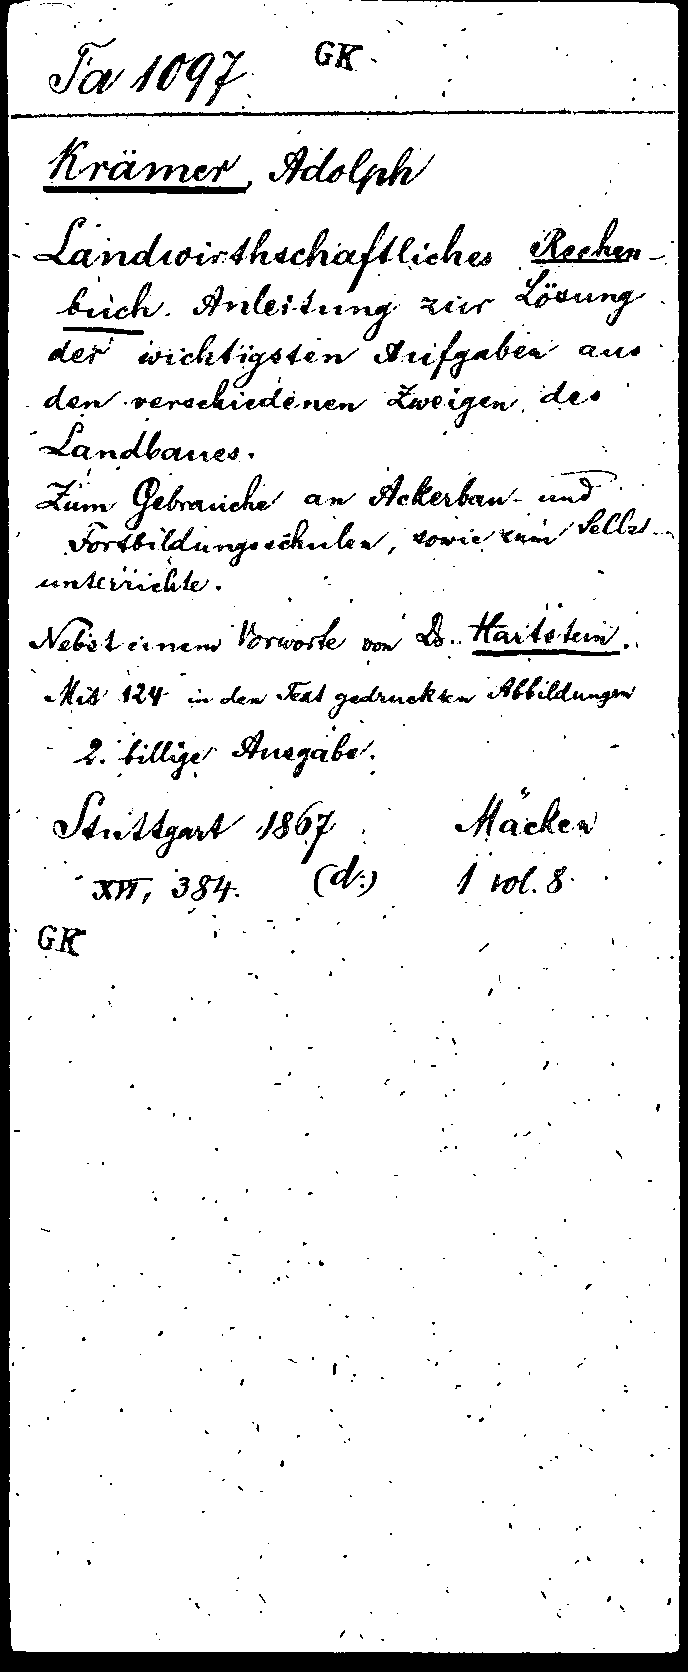 Ta 1097 GK
Krämer, Adolph
Landwirthschaftliches Rechen-
buch. Anleitung zur Lösung
der wichtigsten Aufgaben aus
den verschiedenen Zweigen des
Landbaues.
Zum Gebrauche an Ackerbau- und
Fortbildungsschulen, sowie zum Selbst-
unterrichte.
Nebst einem Vorworte von Dr. Hartstein.
Mit 124 in den Text gedruckten Abbildungen
2. billige Ausgabe.
Stuttgart 1867 Mäcken
XVI, 384. (d.) 1 vol. 8.
GK